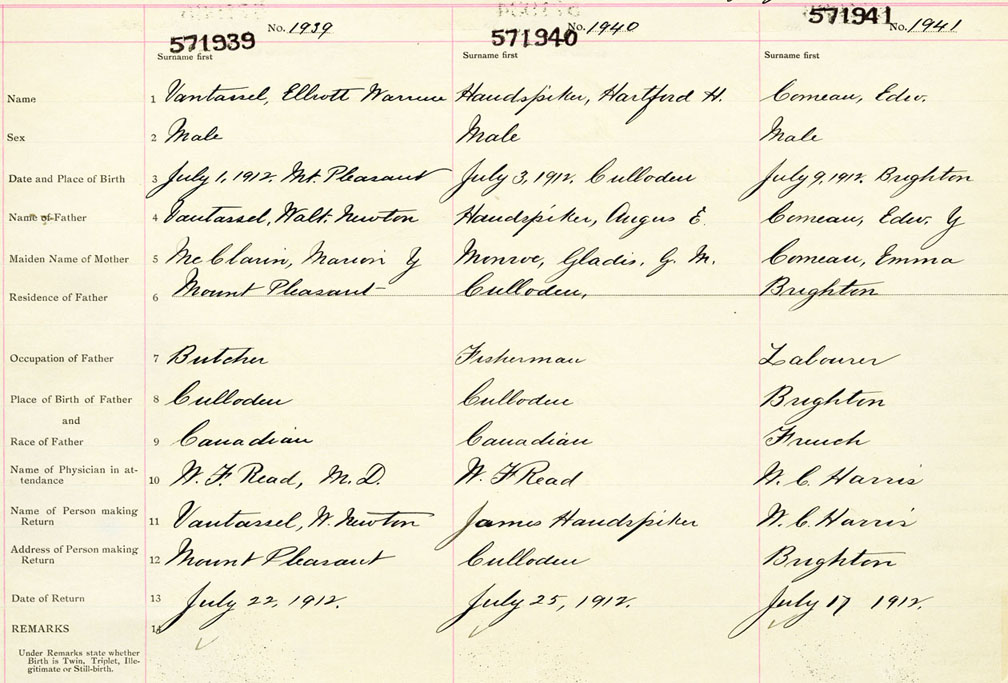 No. 1939 No. 1940 No. 1941
571939 571940 571941
Surname first Surname first Surname first
Name 1 Vantassel, Elliott Warrene Handspiker, Hartford H. Comeau, Edw.
Sex 2 Male Male Male
Date and Place of Birth 3 July 1, 1912. Mt. Pleasant July 3, 1912. Culloden July 9, 1912. Brighton
Name of Father 4 Vantassel, Walt. Newton Handspiker, Angus E. Comeau, Edw. Y
Maiden Name of Mother 5 McClarin, Marion Y Monroe, Gladis. G. M. Comeau, Emma
Residence of Father 6 Mount Pleasant Culloden, Brighton
Occupation of Father 7 Butcher Fisherman Labourer
Place of Birth of Father 8 Culloden Culloden Brighton
and
Race of Father 9 Canadian Canadian French
Name of Physician in at-
tendance 10 W. F. Read, M.D. W. F Read W. C. Harris
Name of Person making
Return 11 Vantassel, W. Newton James Handspiker W. C. Harris
Address of Person making
Return 12 Mount Pleasant Culloden Brighton
Date of Return 13 July 22, 1912. July 25, 1912. July 17 1912.
REMARKS 14
Under Remarks state whether
Birth is Twin, Triplet, Ille-
gitimate or Still-birth.